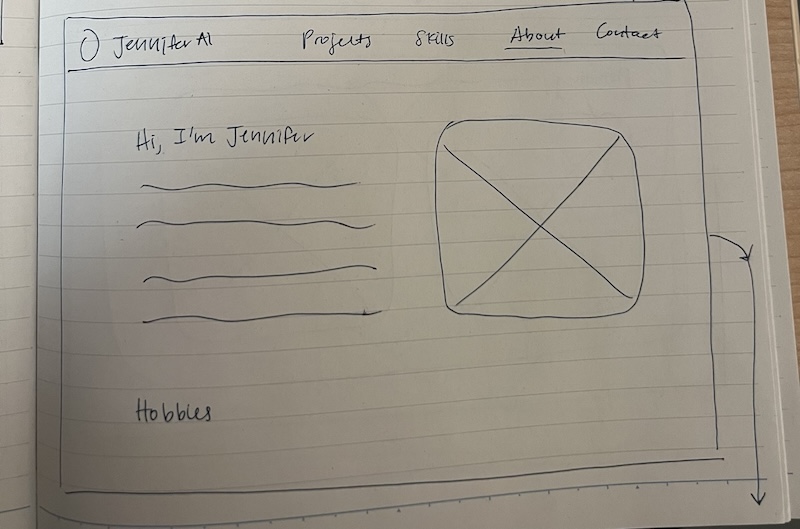 Jennifer AI Projects Skills About Contact
Hi, I'm Jennifer
Hobbies